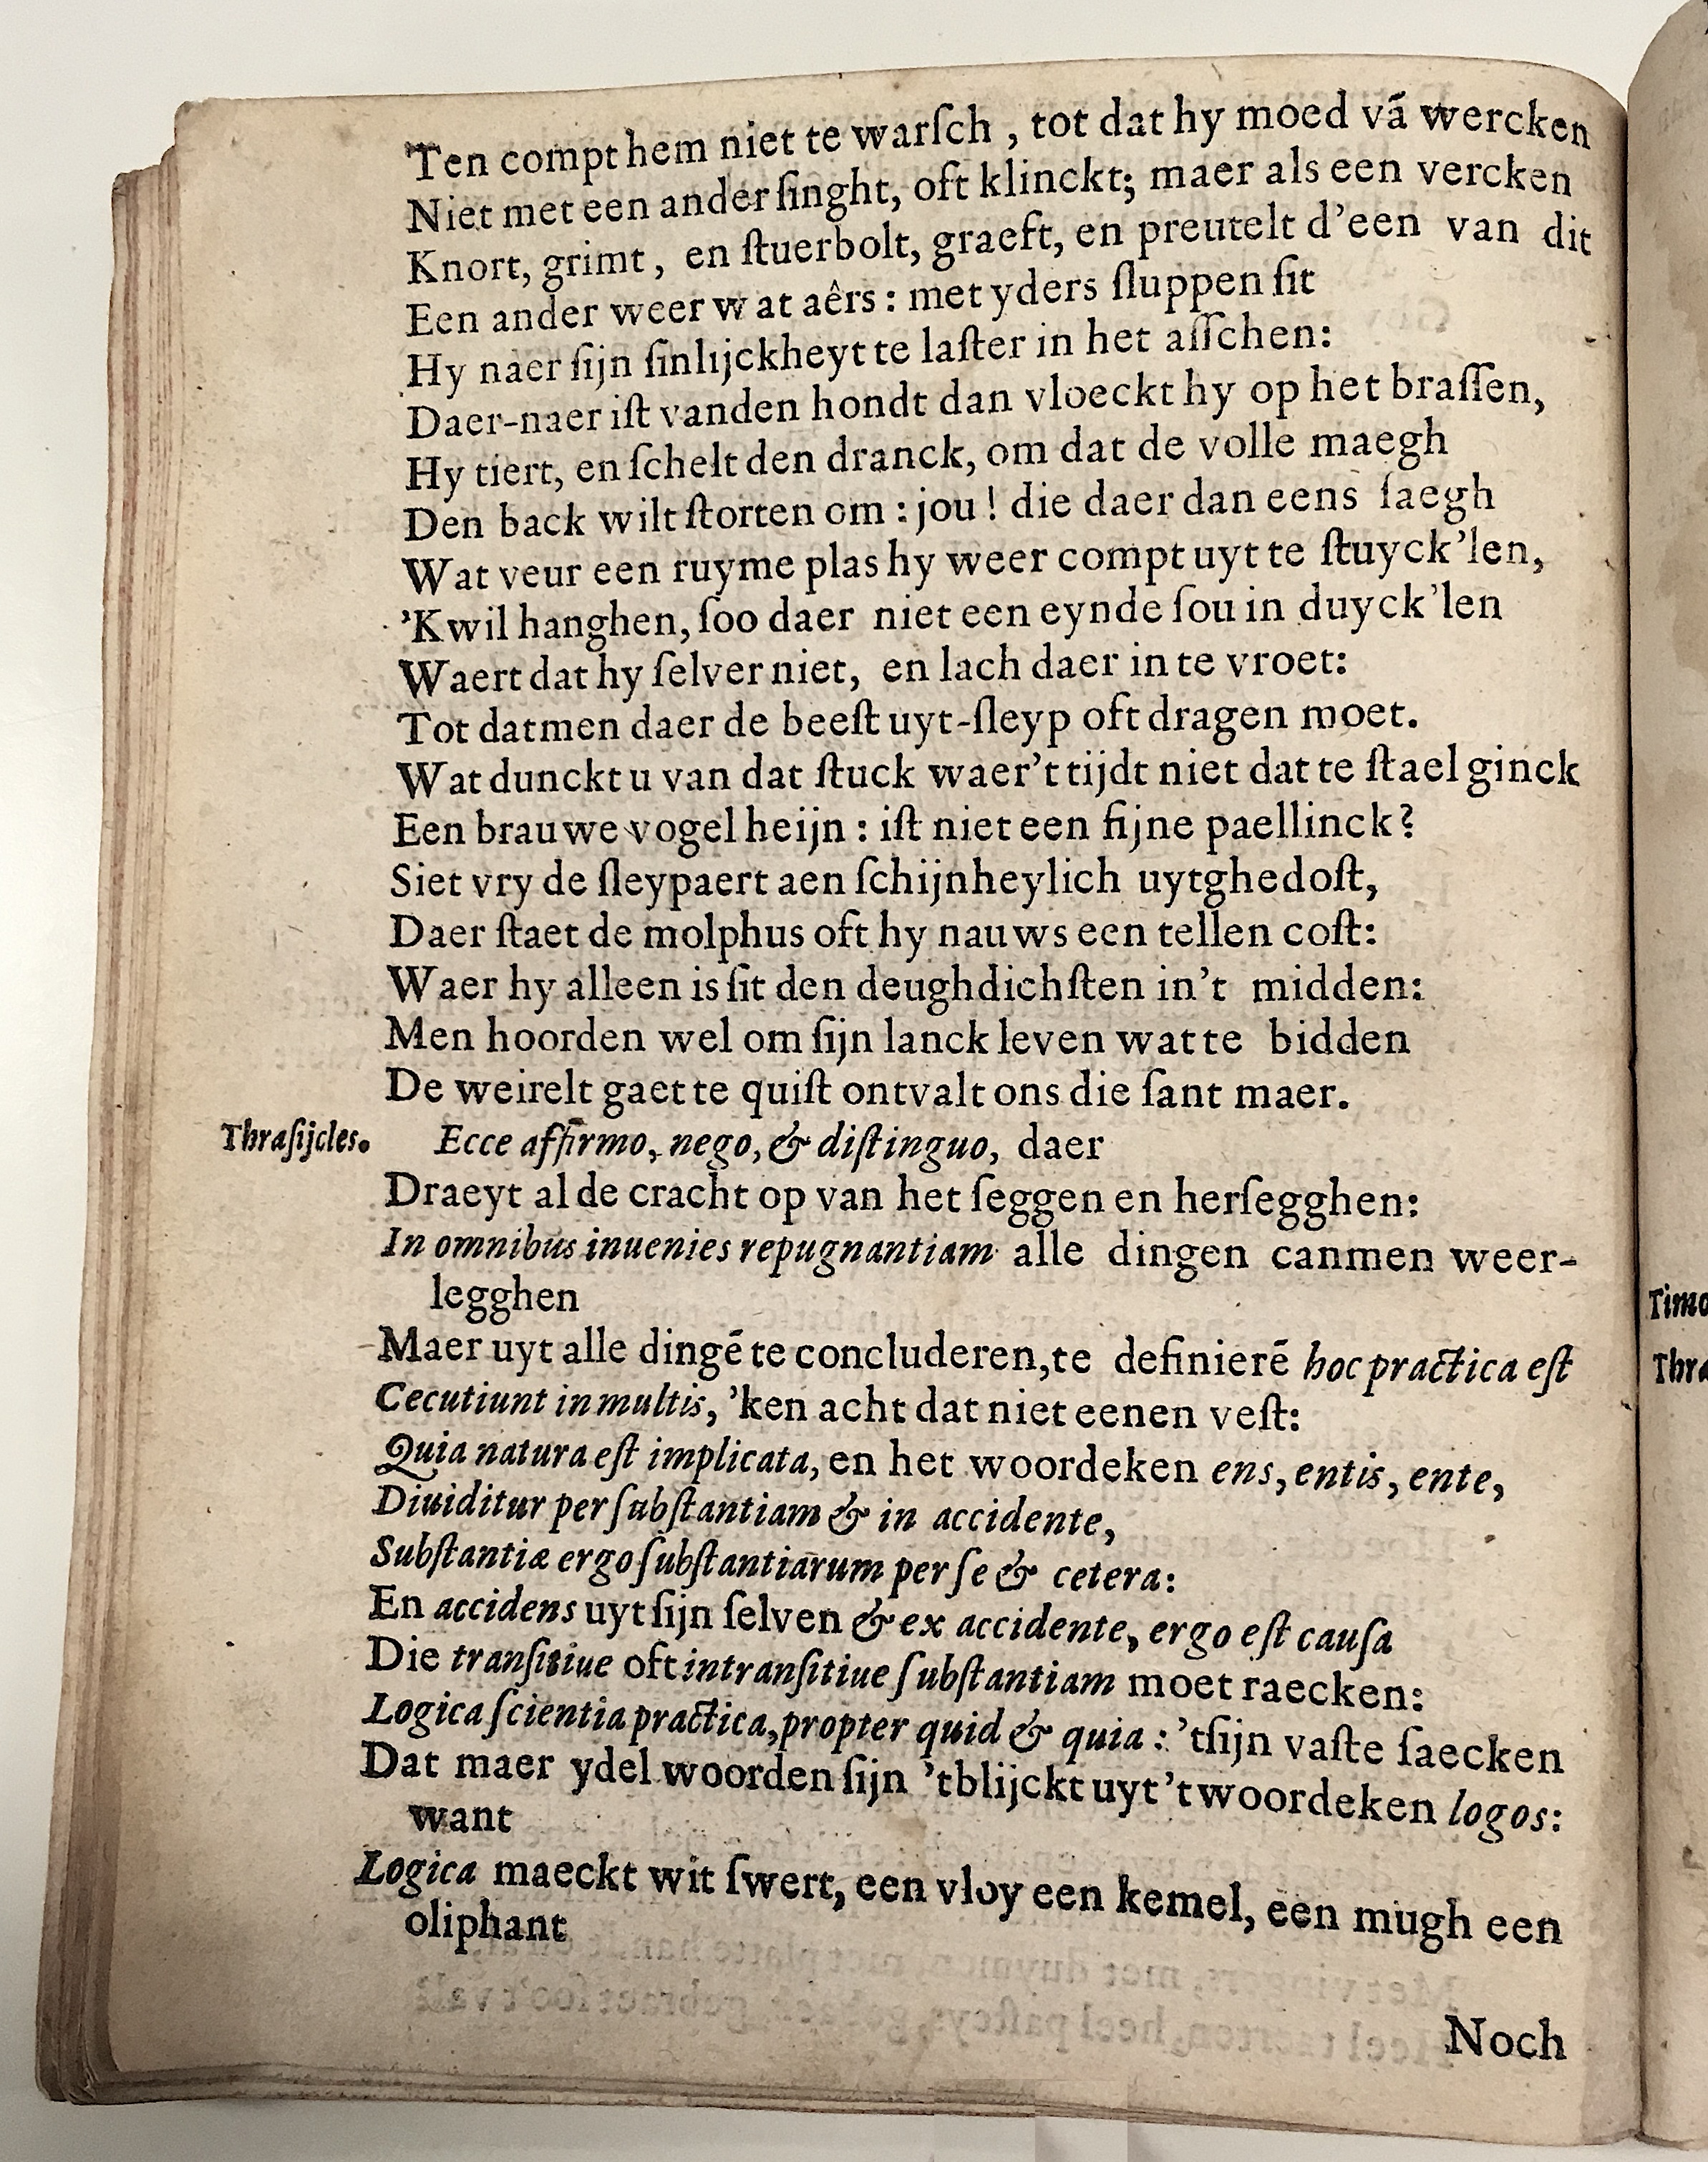 'Ten compt hem niet te warſch, tot dat hy moed vā wercken
Niet met een ander ſinght, oft klinckt; maer als een vercken
Knort, grimt, en ſtuerbolt, graeft, en preutelt d'een van dit
Een ander weer wat aêrs: met yders ſluppen ſit
Hy naer ſijn ſinlijckheyt te laſter in het aſſchen:
Daer-naer iſt vanden hondt dan vloeckt hy op het braſſen,
Hy tiert, en ſchelt den dranck, om dat de volle maegh
Den back wilt ſtorten om: jou! die daer dan eens ſaegh
Wat veur een ruyme plas hy weer compt uyt te ſtuyck'len,
'Kwil hanghen, ſoo daer niet een eynde ſou in duyck'len
Waert dat hy ſelver niet, en lach daer in te vroet:
Tot datmen daer de beeſt uyt-ſleyp oft dragen moet.
Wat dunckt u van dat ſtuck waer't tijdt niet dat te ſtael ginck
Een brauwe vogel heijn: iſt niet een fijne paellinck?
Siet vry de ſleypaert aen ſchijnheylich uytghedoſt,
Daer ſtaet de molphus oft hy nauws een tellen coſt:
Waer hy alleen is ſit den deughdichſten in't midden:
Men hoorden wel om ſijn lanck leven wat te bidden
De weirelt gaet te quiſt ontvalt ons die ſant maer.
Thraſijcles. Ecce affirmo, nego, & diſtinguo, daer
Draeyt al de cracht op van het ſeggen en herſegghen:
In omnibus inuenies repugnantiam alle dingen canmen weer-
legghen
Maer uyt alle dingē te concluderen, te definierē hoc practica eſt
Cecutiunt in multis, 'ken acht dat niet eenen veſt:
Quia natura eſt implicata, en het woordeken ens, entis, ente,
Diuiditur per ſubſtantiam & in accidente,
Subſtantiæ ergo ſubſtantiarum per ſe & cetera:
En accidens uyt ſijn ſelven & ex accidente, ergo eſt cauſa
Die tranſitiue oft intranſitiue ſubſtantiam moet raecken:
Logica ſcientia practica, propter quid & quia: 'tſijn vaſte ſaecken
Dat maer ydel woorden ſijn 'tblijckt uyt 't woordeken logos:
want
Logica maeckt wit ſwert, een vloy een kemel, een mugh een
oliphant
Noch
Timo
Thra